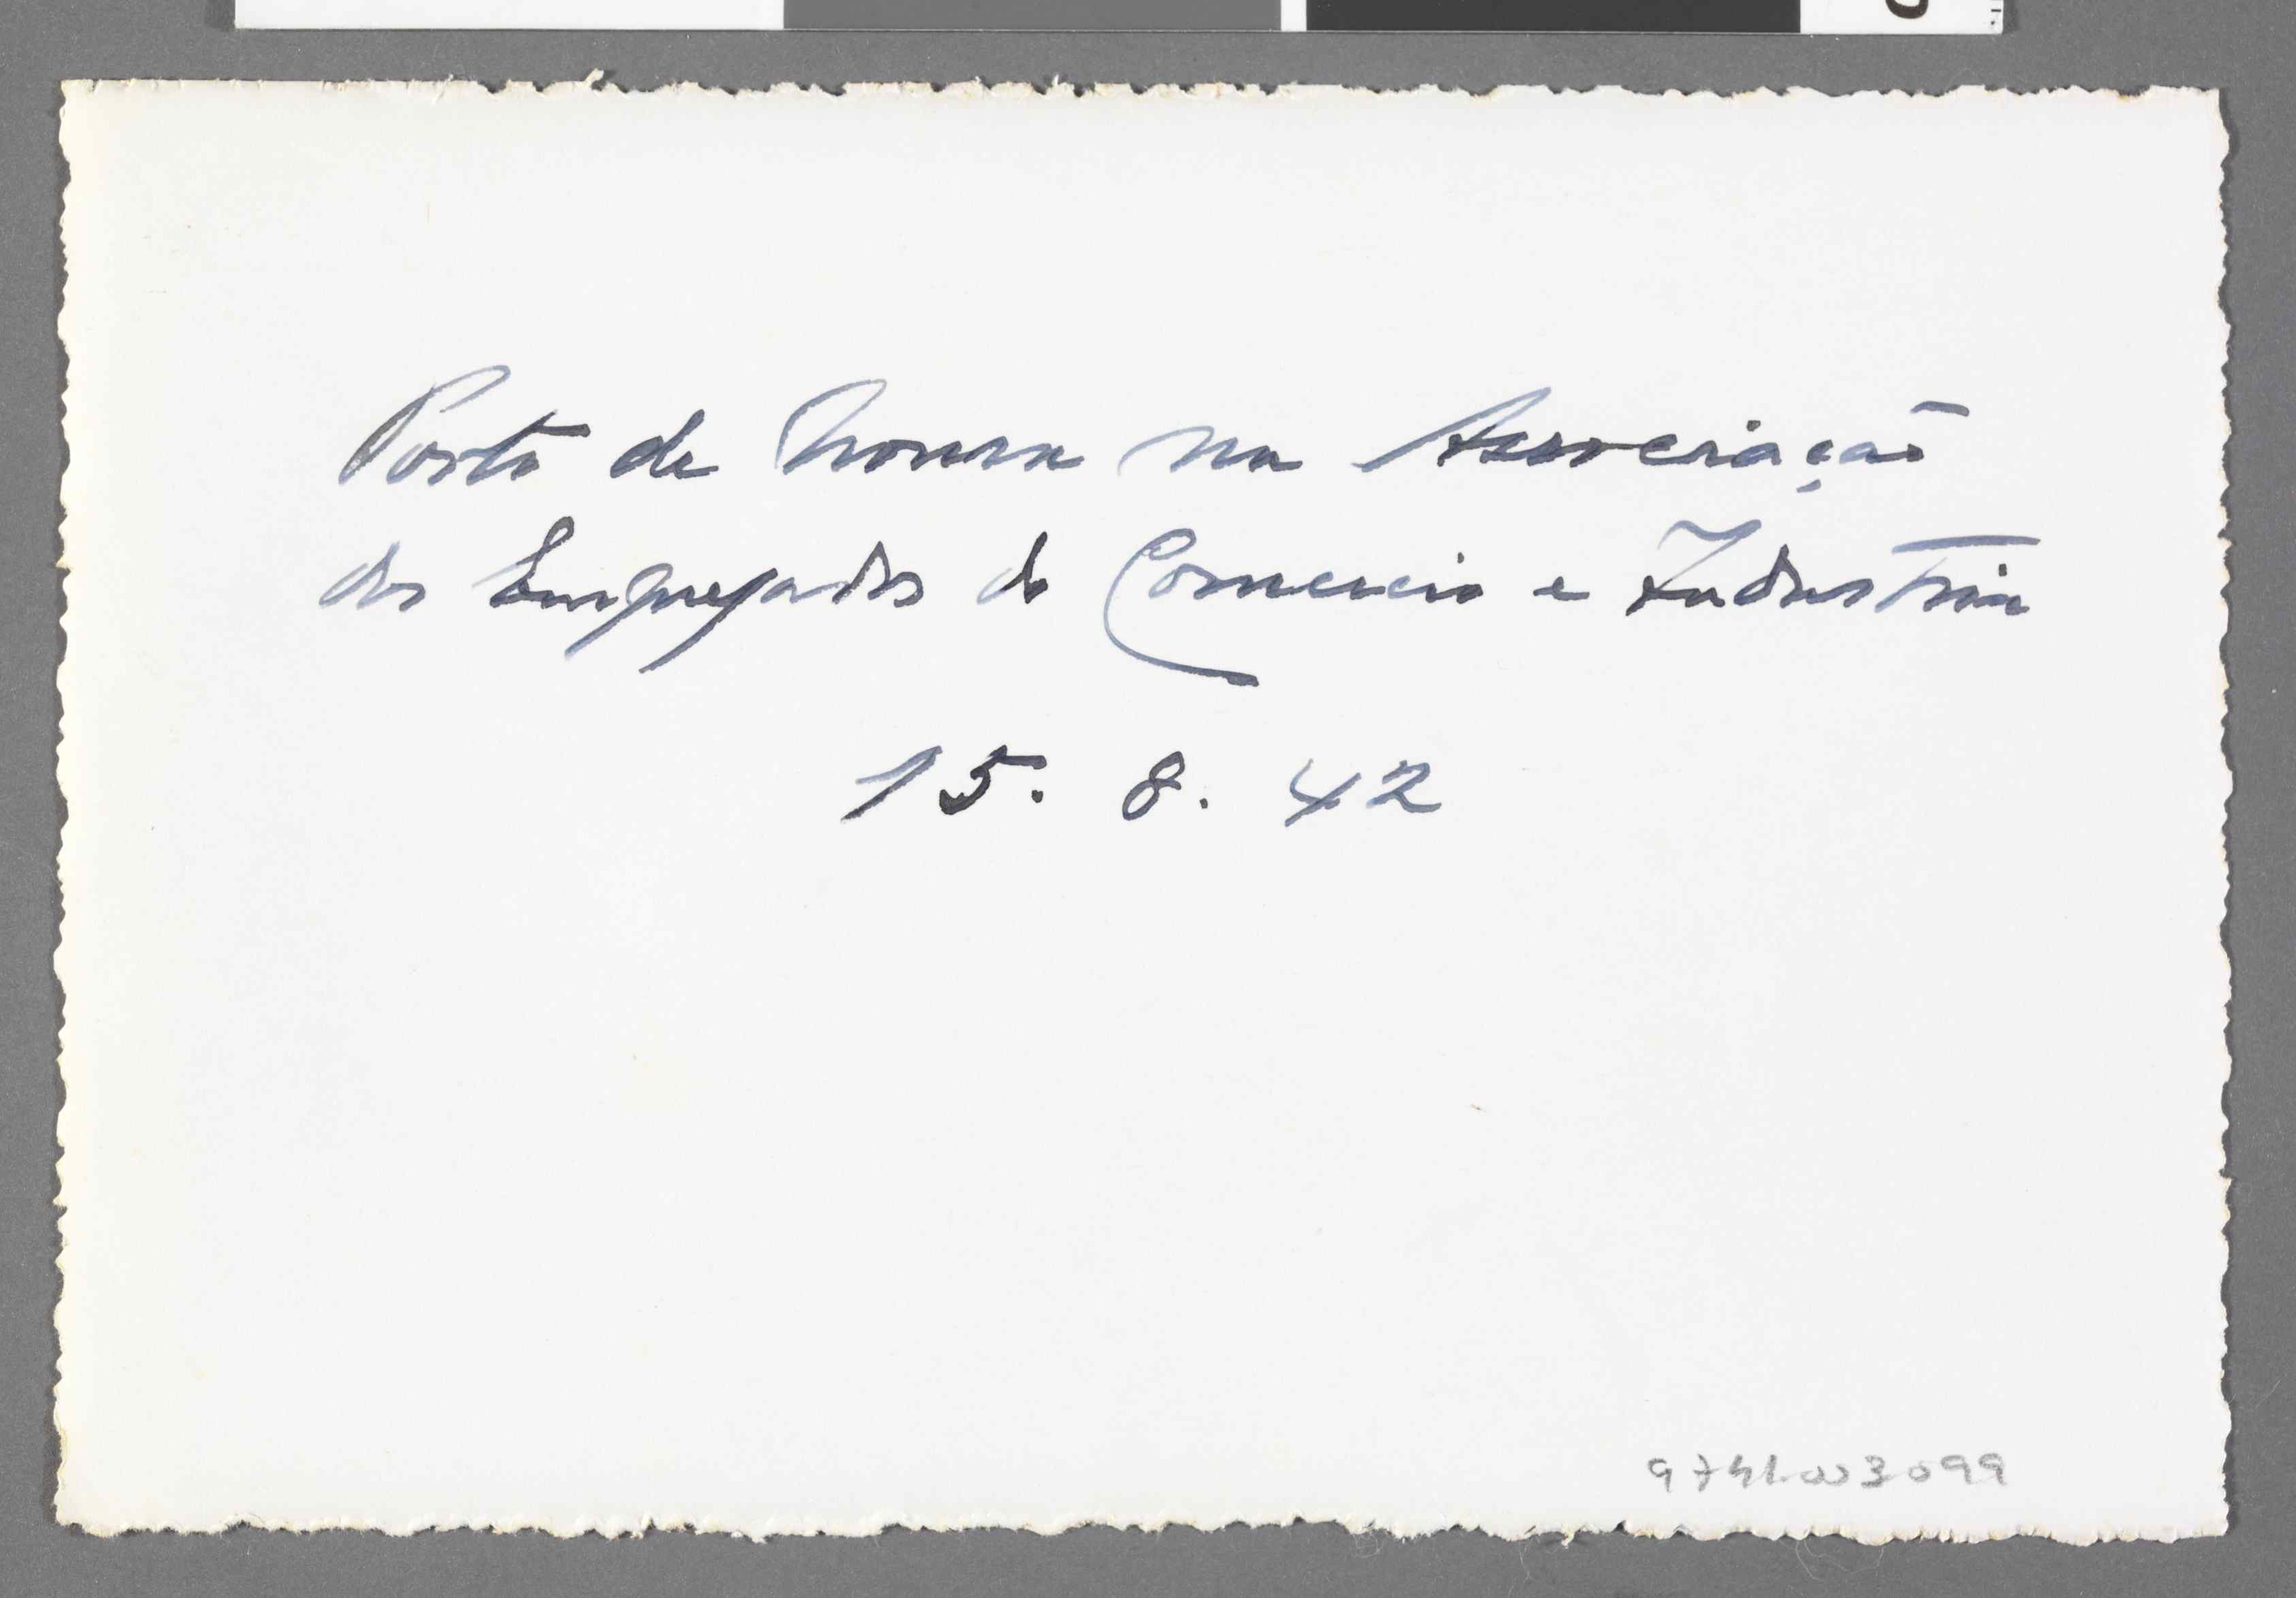 Porto de honra na Associação
dos Empregados do Comercio e Industria
15. 8. 42
9741.003.099